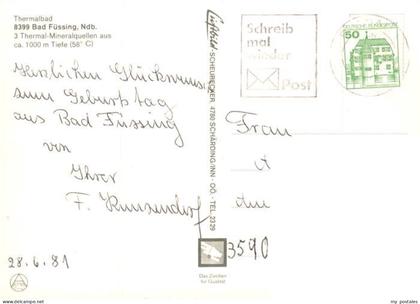 Thermalbad
8399 Bad Füssing, Ndb.
3 Thermal-Mineralquellen aus
ca. 1000 m Tiefe (58° C)
Herzlichen Glückwunsch
zum Geburtstag
aus Bad Füssing
von
Ihrer
F. Kunzendorf
28.6.81
4780 SCHÄRDING/INN - OÖ. - TEL. 2329
Das Zeichen
für Qualität
Schreib
mal
wieder
Post
DEUTSCHE BUNDESPOST
50
Frau
3590